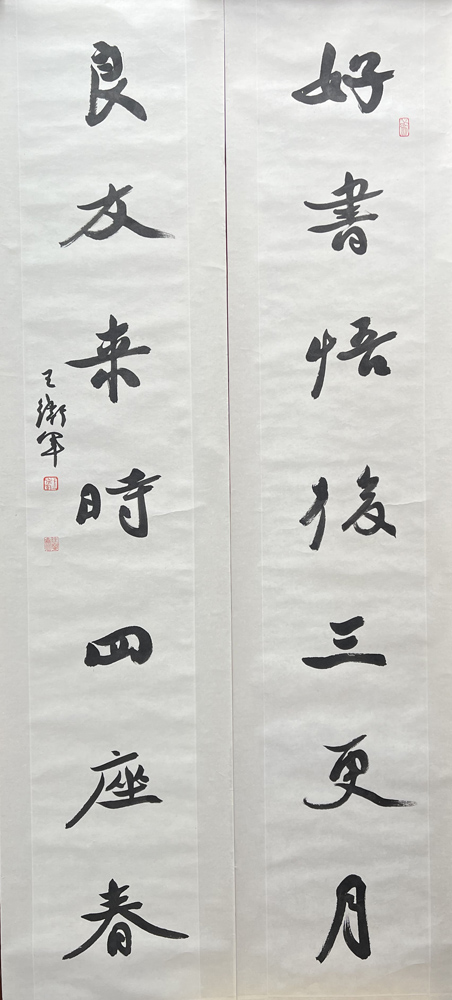 好書悟後三更月
良友来時四座春
王衛軍